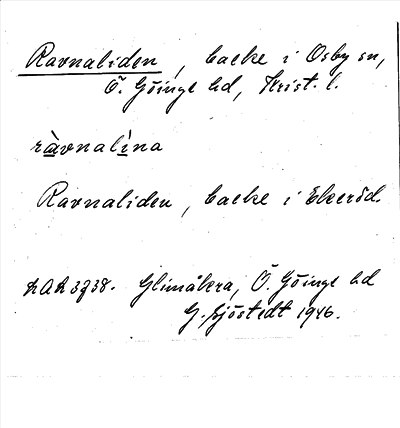 Ravnaliden, backe i Osby sn,
Ö. Göinge hd, Krist. l.
ràvnalìna
Ravnaliden, backe i Ekeröd.
LAL 3738. Glimåkra, Ö. Göinge hd
G. Sjöstedt 1946.